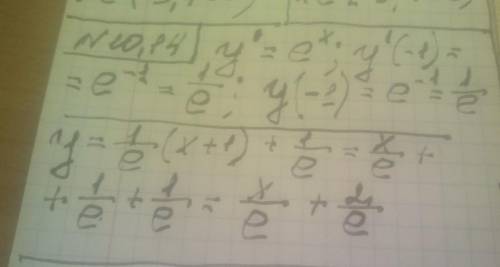 №20,14 y' = eˣ; y'(-1) =
= e⁻¹ = 1/e; y(-1) = e⁻¹ = 1/e
y = 1/e (x+1) + 1/e = x/e +
+ 1/e + 1/e = x/e + 2/e